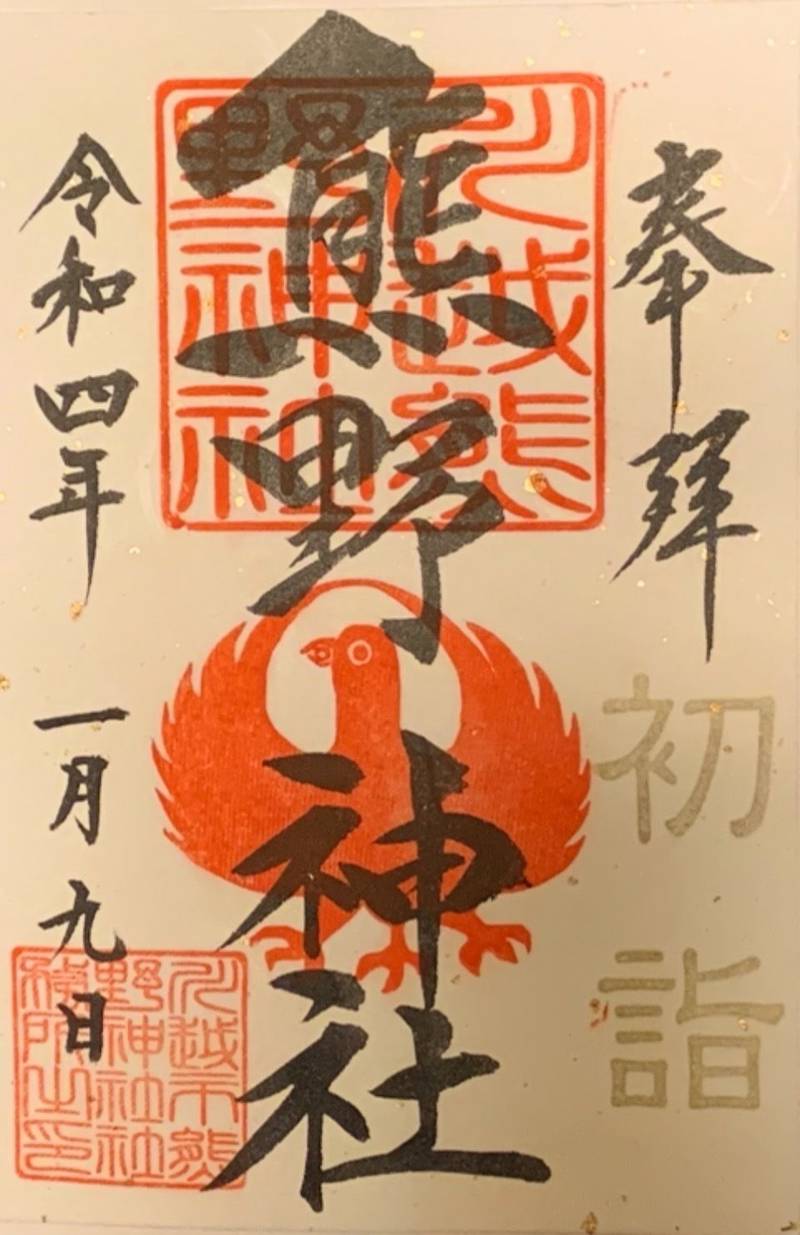 奉拝
初詣
熊野神社
川越熊
野神社
令和四年
一月九日
川越市熊
野神社社
務所之印